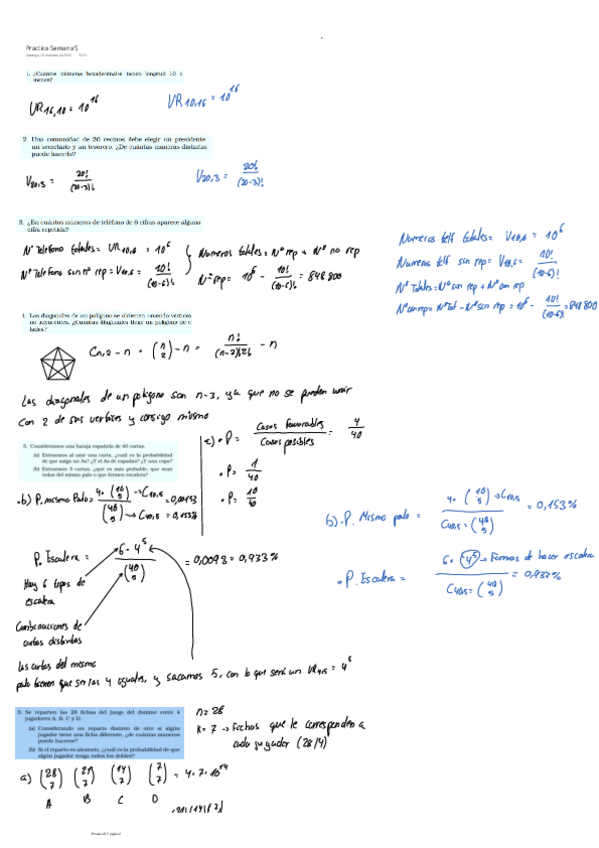 Practica Semana 5
1. ¿Cuántos números hexadecimales tienen longitud 10 o
menos?
VR16,10 = 10^16
VR10,16 = 10^16
2. Una comunidad de 20 vecinos debe elegir un presidente
un secretario y un tesorero. ¿De cuántas maneras distintas
puede hacerlo?
V20,3 = 20!/(20-3)!
V20,3 = 20!/(20-3)!
3. ¿En cuántos números de teléfono de 6 cifras aparece alguna
cifra repetida?
Nº Telefono totales = VR10,6 = 10^6
Nº Telefono sin nº rep = V10,6 = 10!/(10-6)!
Numeros totales = Nº rep + Nº no rep
Nº rep = 10^6 - 10!/(10-6)! = 848 800
Numeros telf totales = V10,6 = 10^6
Numeros telf sin rep = V10,6 = 10!/(10-6)!
Nº Totales = Nº con rep + Nº con rep
Nº con rep = Nº Tot - Nº sin rep = 10^6 - 10!/(10-6)! = 848 800
4. Las diagonales de un polígono se obtienen uniendo vértices
no adyacentes. ¿Cuántas diagonales tiene un polígono de n
lados?
Cn,2 - n = (n 2) - n = n!/(n-2)!2! - n
Las diagonales de un poligono son n-3, ya que no se pueden unir
con 2 de sus vertices y consigo mismo
5. Consideramos una baraja española de 40 cartas.
(a) Extraemos al azar una carta, ¿cuál es la probabilidad
de que salga un As? ¿Y el As de espadas? ¿Y una copa?
(b) Extraemos 5 cartas, ¿qué es más probable, que sean
todas del mismo palo o que formen escalera?
a) • P = Casos favorables/Casos posibles = 4/40
• P = 1/40
• P = 10
• b) P. mismo Palo = 4·(10 5)→C10,5/(40 5)→C40,5 = 0,00153
= 0,153%
b) • P. Mismo palo = 4·(10 5)→C10,5/C40,5 = (40 5) = 0,153%
P. Escalera = 6·4^5/(40 5) = 0,0093 = 0,933%
• P. Escalera = 6·4^5→Formas de hacer escalera/C40,5 = (40 5) = 0,933%
Hay 6 tipos de
escalera
Combinaciones de
cartas distintas
Las cartas del mismo
palo tienen que ser las 4 iguales, y sacamos 5, con lo que será un VR4,5 = 4^5
5. Se reparten las 28 fichas del juego del dominó entre 4
jugadores A, B, C y D.
(a) Considerando un reparto distinto de otro si algún
jugador tiene una ficha diferente, ¿de cuántas maneras
puede hacerse?
(b) Si el reparto es aleatorio, ¿cuál es la probabilidad de que
algún jugador tenga todos los dobles?
n = 28
k = 7 → Fichas que le corresponden a
cada jugador (28/4)
a) (28 7) (21 7) (14 7) (7 7) = 4·7·10^14
A B C D